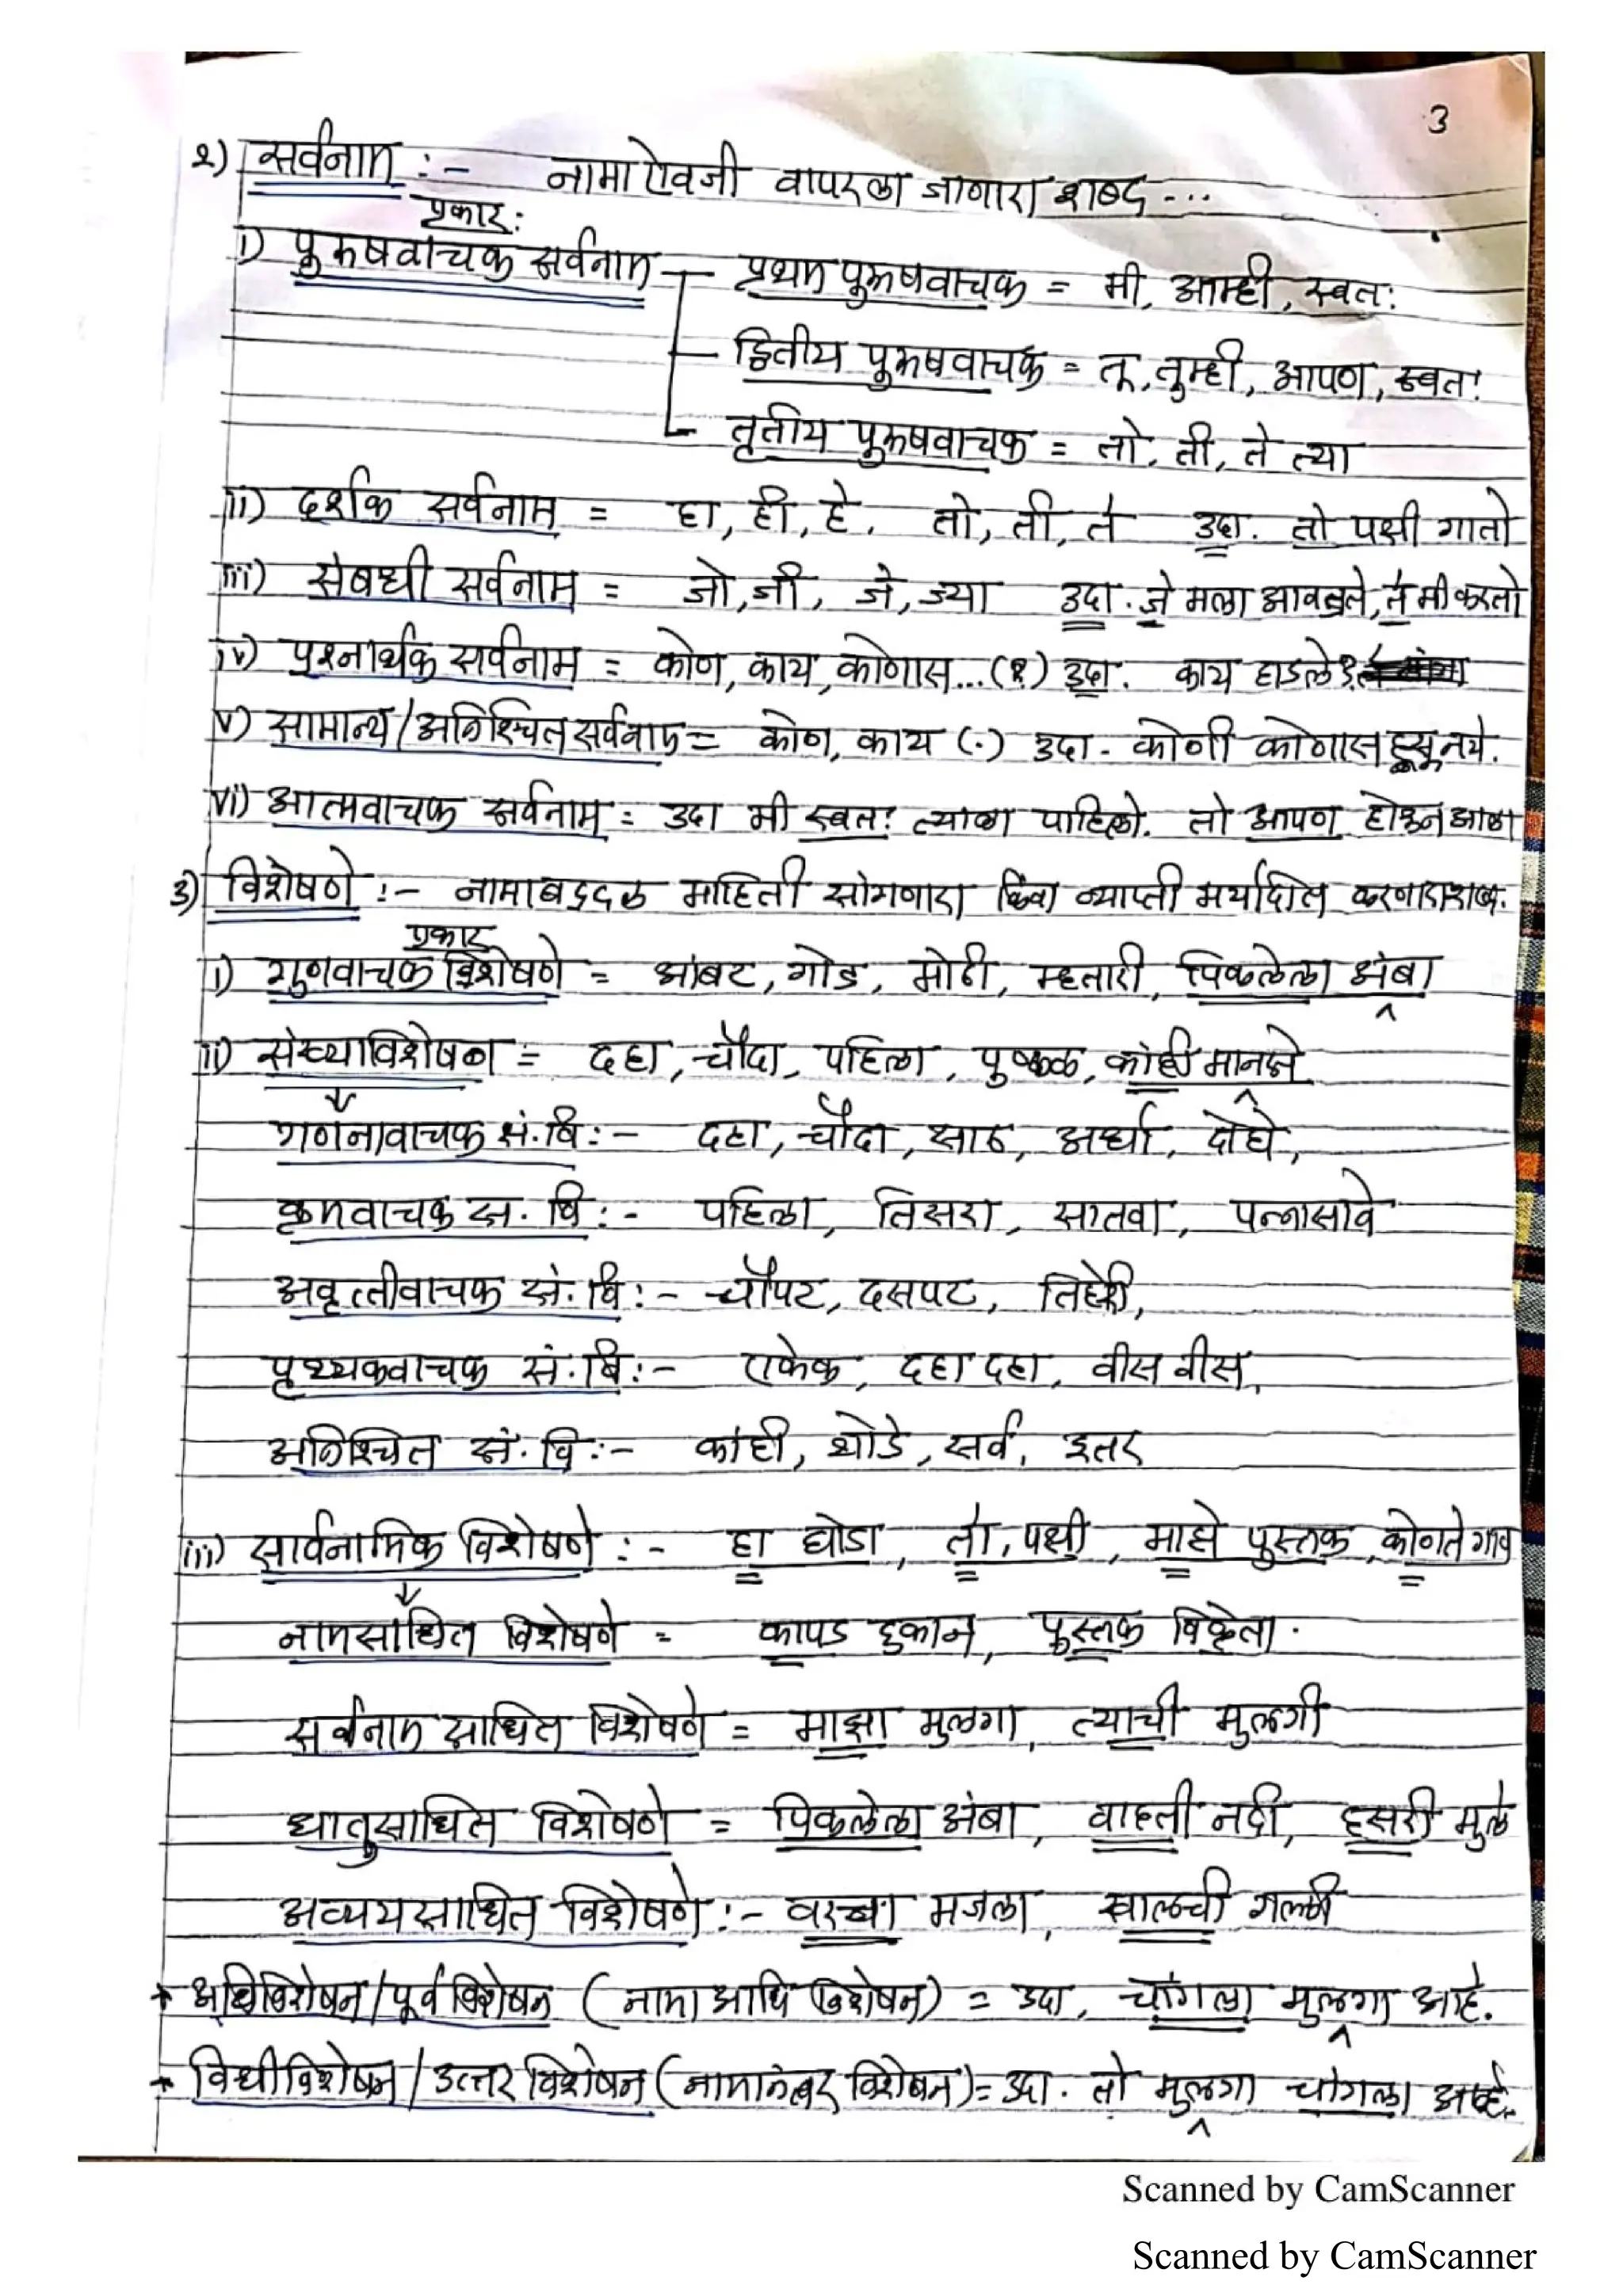 3
२) सर्वनाम :- नामाऐवजी वापरला जाणारा शब्द...
प्रकार:
i) पुरुषवाचक सर्वनाम - प्रथम पुरुषवाचक = मी, आम्ही, स्वतः
- द्वितीय पुरुषवाचक = तू, तुम्ही, आपण, स्वतः
- तृतीय पुरुषवाचक = तो, ती, ते त्या
ii) दर्शक सर्वनाम = हा, ही, हे. तो, ती, ते उदा. तो पक्षी गातो
iii) संबधी सर्वनाम = जो, जी, जे, ज्या उदा. जे मला आवडते, ते मी करतो
iv) प्रश्नार्थक सर्वनाम = कोण, काय, कोणास...(?) उदा. काय हाडले?
v) सामान्य/अनिश्चित सर्वनाम = कोण, काय (.) उदा. कोणी कोणास हसू नये.
vi) आत्मवाचक सर्वनाम = उदा मी स्वतः त्याला पाहिले. तो आपण होऊन आला
३) विशेषणे :- नामाबद्दल माहिती सांगणारा किंवा व्याप्ती मर्यादित करणारा शब्द.
प्रकार
i) गुणवाचक विशेषणे = आंबट, गोड, मोठी, म्हतारी, पिकलेला अंबा
ii) संख्याविशेषण = दहा, चौदा, पहिला, पुष्कळ, कांही मानसे
गणनावाचक सं.वि :- दहा, चौदा, साठ, अर्धा, दोघे,
क्रमवाचक स. वि :- पहिला, तिसरा, सातवा, पन्नासावे
अवृत्तीवाचक सं. वि :- चौपट, दसपट, तिहेरी,
पृथ्यकवाचक सं. वि :- एकेक, दहा दहा, वीस वीस,
अनिश्चित सं. वि :- कांही, थोडे, सर्व, इतर
iii) सार्वनामिक विशेषणे :- हा घोडा, तो, पक्षी, माझे पुस्तक, कोणते गाव
नामसाधित विशेषणे = कापड दुकान, पुस्तक विक्रेता.
सर्वनाम साधित विशेषणे = माझा मुलगा, त्याची मुलगी
धातुसाधित विशेषणे = पिकलेला अंबा, वाहती नदी, हसरी मुले
अव्ययसाधित विशेषणे :- वरचा मजला, खालची गल्ली
+ अधिविशेषन/पूर्व विशेषन (नामा आधि विशेषन) = उदा, चांगला मुलगा आहे.
+ विधीविशेषन/उत्तर विशेषन (नामानंतर विशेषन) = उदा. तो मुलगा चांगला आहे.
Scanned by CamScanner
Scanned by CamScanner